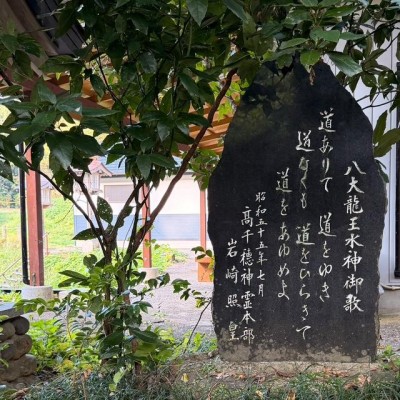 八大龍王水神御歌
道ありて 道をゆき
道なくも 道をひらきて
道をあゆめよ
昭和五十五年七月
高千穂神霊本部
岩崎照皇